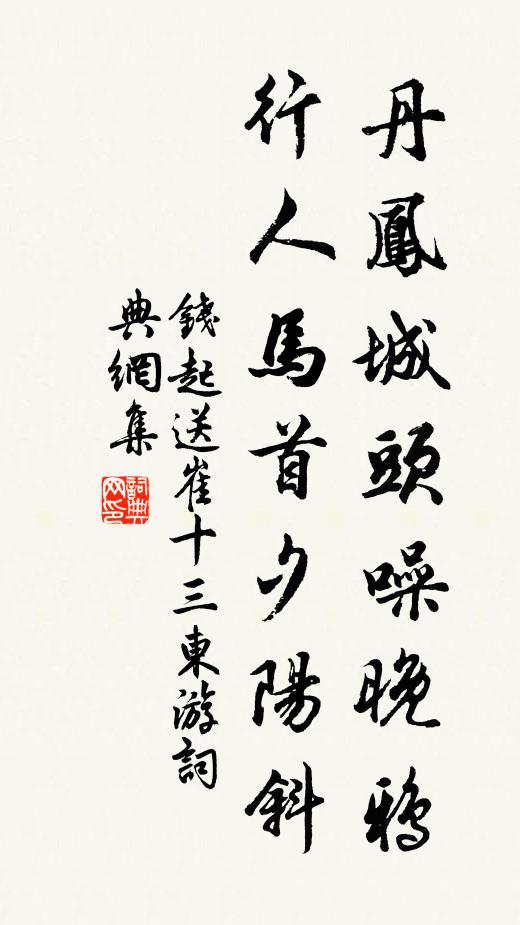 丹鳳城頭噪晚鴉
行人馬首夕陽斜
錢起送崔十三東游詞
典網集
詞典
网印